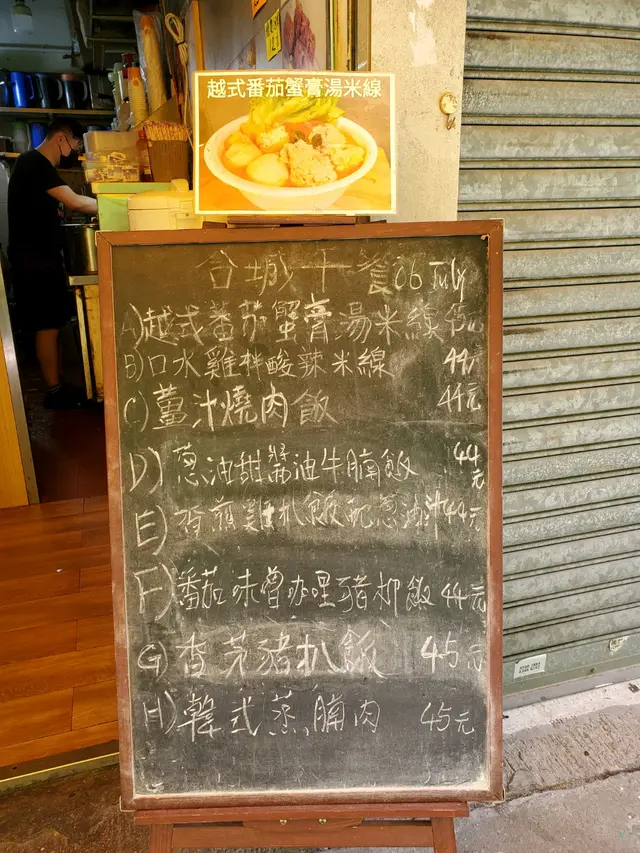 越式番茄蟹膏湯米線
午餐 06 July
A) 越式蕃茄蟹膏湯米線
B) 口水雞拌酸辣米線 44元
C) 薑汁燒肉飯 44元
D) 蔥油甜醬油牛腩飯 44元
E) 香煎雞扒飯配蔥油汁 44元
F) 番茄味噌咖哩豬柳飯 44元
G) 香茅豬扒飯 45元
H) 韓式蒸腩肉 45元